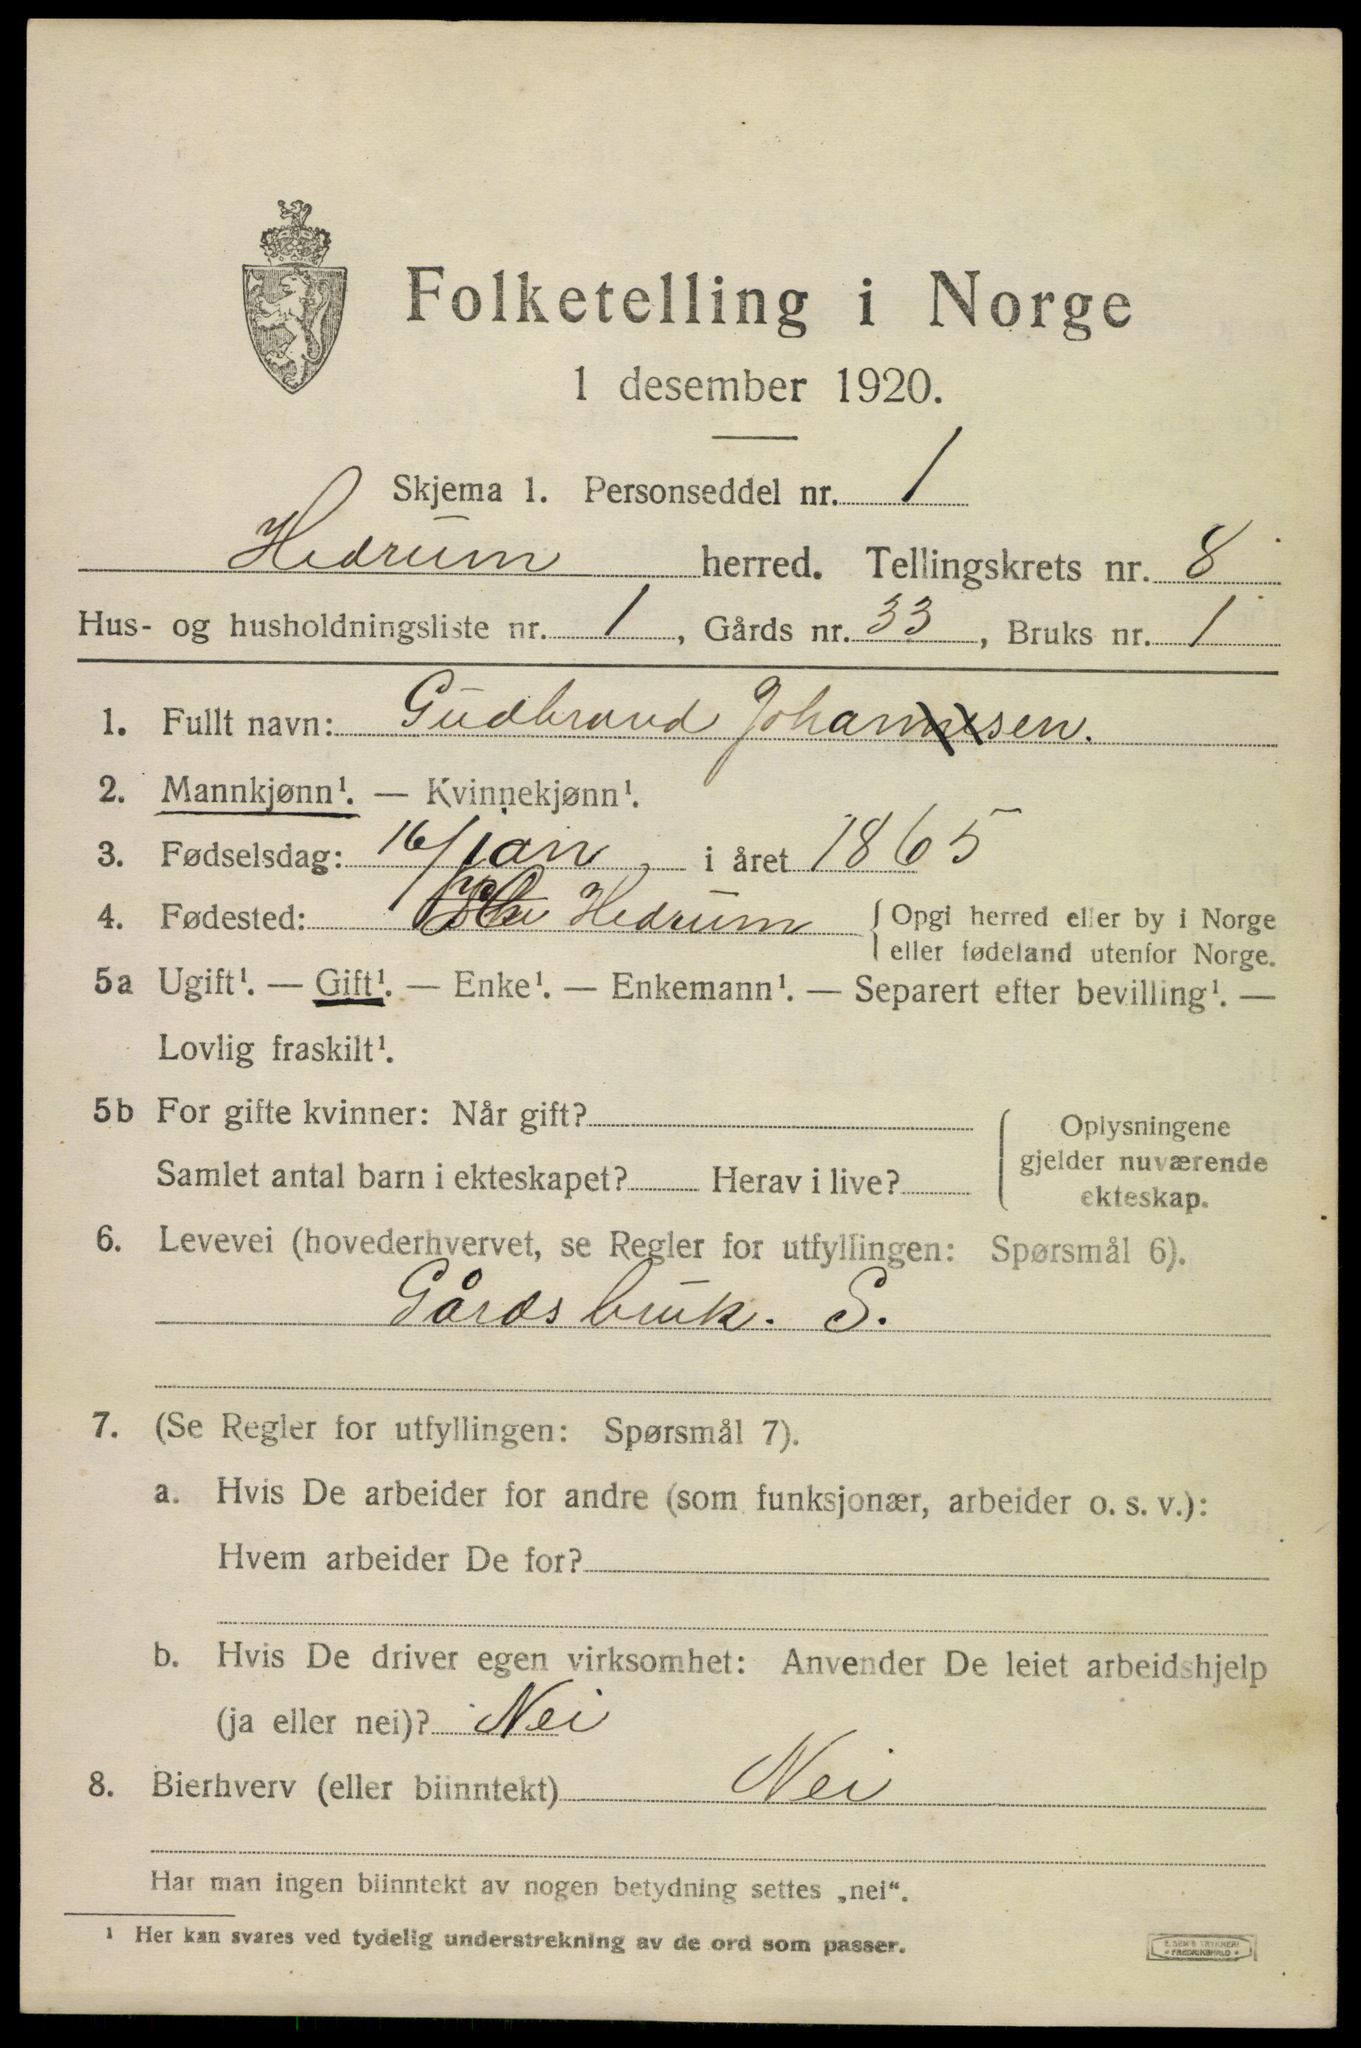 Folketelling i Norge
1 desember 1920.
Skjema 1. Personseddel nr. 1
Hedrum herred. Tellingskrets nr. 8
Hus- og husholdningsliste nr. 1, Gårds nr. 33, Bruks nr. 1
1. Fullt navn: Gudbrand Johannesen.
2. Mannkjønn¹. — Kvinnekjønn¹.
3. Fødselsdag: 16/jan i året 1865
4. Fødested: Hedrum {Opgi herred eller by i Norge
eller fødeland utenfor Norge.
5a Ugift¹. — Gift¹. — Enke¹. — Enkemann¹. — Separert efter bevilling¹. —
Lovlig fraskilt¹.
5b For gifte kvinner: Når gift?
Samlet antal barn i ekteskapet? Herav i live?
Oplysningene
gjelder nuværende
ekteskap.
6. Levevei (hovederhvervet, se Regler for utfyllingen: Spørsmål 6).
Gårdsbruk. S.
7. (Se Regler for utfyllingen: Spørsmål 7).
a. Hvis De arbeider for andre (som funksjonær, arbeider o. s. v.):
Hvem arbeider De for?
b. Hvis De driver egen virksomhet: Anvender De leiet arbeidshjelp
(ja eller nei)? Nei
8. Bierhverv (eller biinntekt) Nei
Har man ingen biinntekt av nogen betydning settes „nei“.
¹ Her kan svares ved tydelig understrekning av de ord som passer.
E. SEM'S TRYKKERI
FREDRIKSHALD